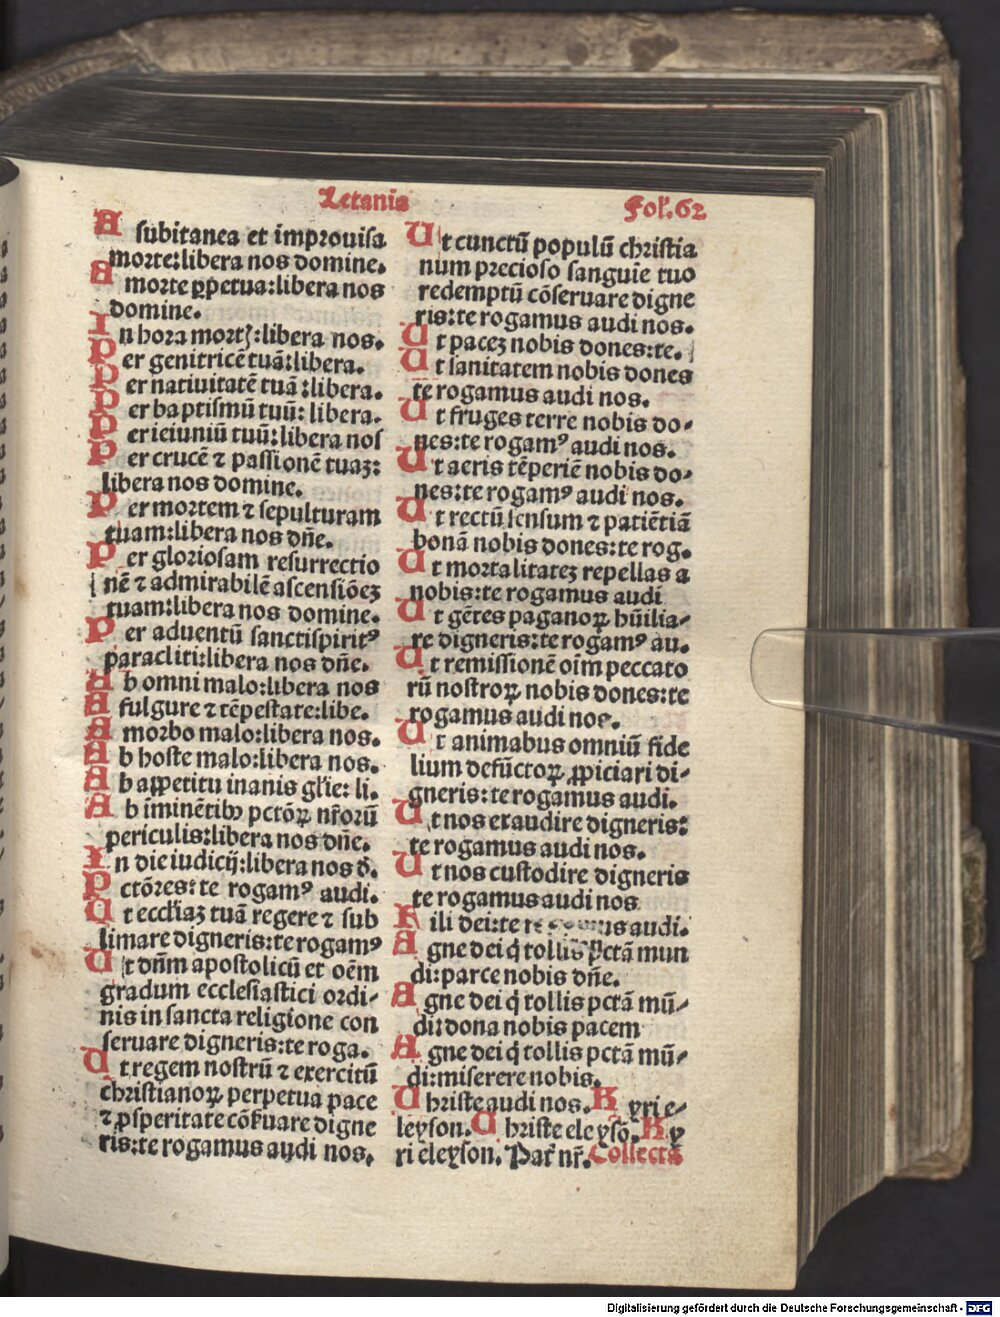 Letania Fol'.62
A subitanea et improuisa
morte:libera nos domine.
A morte ꝑpetua:libera nos
domine.
In hora mortꝭ:libera nos.
Per genitricē tuā:libera.
Per natiuitatē tuā:libera.
Per baptismū tuū:libera.
Per ieiuniū tuū:libera nos
Per crucē ⁊ passionē tuaꝫ:
libera nos domine.
Per mortem ⁊ sepulturam
tuam:libera nos dn̄e.
Per gloriosam resurrectio
nē ⁊ admirabilē ascensiōeꝫ
tuam:libera nos domine.
Per aduentū sanctispiritꝰ
paracliti:libera nos dn̄e.
Ab omni malo:libera nos
A fulgure ⁊ tēpestate:libe.
A morbo malo:libera nos.
Ab hoste malo:libera nos.
Ab appetitu inanis gl'ie: li.
Ab īminētibꝰ pctōꝝ nr̄orū
periculis:libera nos dn̄e.
In die iudicij:libera nos d̄.
Pctōres:te rogamꝰ audi.
Ut eccl'iaꝫ tuā regere ⁊ sub
limare digneris:te rogamꝰ
Ut dn̄m apostolicū et oēm
gradum ecclesiastici ordi-
nis in sancta religione con
seruare digneris:te roga.
Ut regem nostrū ⁊ exercitū
christianoꝝ perpetua pace
⁊ ꝓsperitate cōẜuare digne
ris:te rogamus audi nos.
Ut cunctū populū christia
num precioso sanguīe tuo
redemptū cōseruare digne
ris:te rogamus audi nos.
Ut paceꝫ nobis dones:te.
Ut sanitatem nobis dones
te rogamus audi nos.
Ut fruges terre nobis do-
nes:te rogamꝰ audi nos.
Ut aeris tēperiē nobis do-
nes:te rogamꝰ audi nos.
Ut rectū sensum ⁊ patiētiā
bonā nobis dones:te rog.
Ut mortalitateꝫ repellas a
nobis:te rogamus audi
Ut gētes paganoꝝ hūilia-
re digneris:te rogamꝰ au.
Ut remissionē oīm peccato
rū nostroꝝ nobis dones:te
rogamus audi nos.
Ut animabus omniū fide
lium defūctoꝝ ꝓpiciari di-
gneris:te rogamus audi.
Ut nos exaudire digneris:
te rogamus audi nos.
Ut nos custodire digneris
te rogamus audi nos
Fili dei:te rogamus audi.
Agne dei q̄ tollis pctā mun
di:parce nobis dn̄e.
Agne dei q̄ tollis pctā mū-
di:dona nobis pacem
Agne dei q̄ tollis pctā mū-
di:miserere nobis.
Christe audi nos. Kyri e-
leyson. Christe eleysō. Ky
ri eleyson. Pat̄ nr̄. Collecta
Digitalisierung gefördert durch die Deutsche Forschungsgemeinschaft - DFG